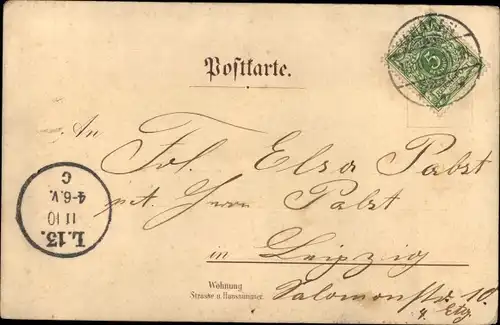 Postkarte.
5
An
Frl. Elsa Pabst
Herrn Pabst
in Leipzig
Wohnung
Strasse u. Hausnummer.
Salomonstr. 10.
4. Etg.
L. 13.
11 10
4-6.V.
C